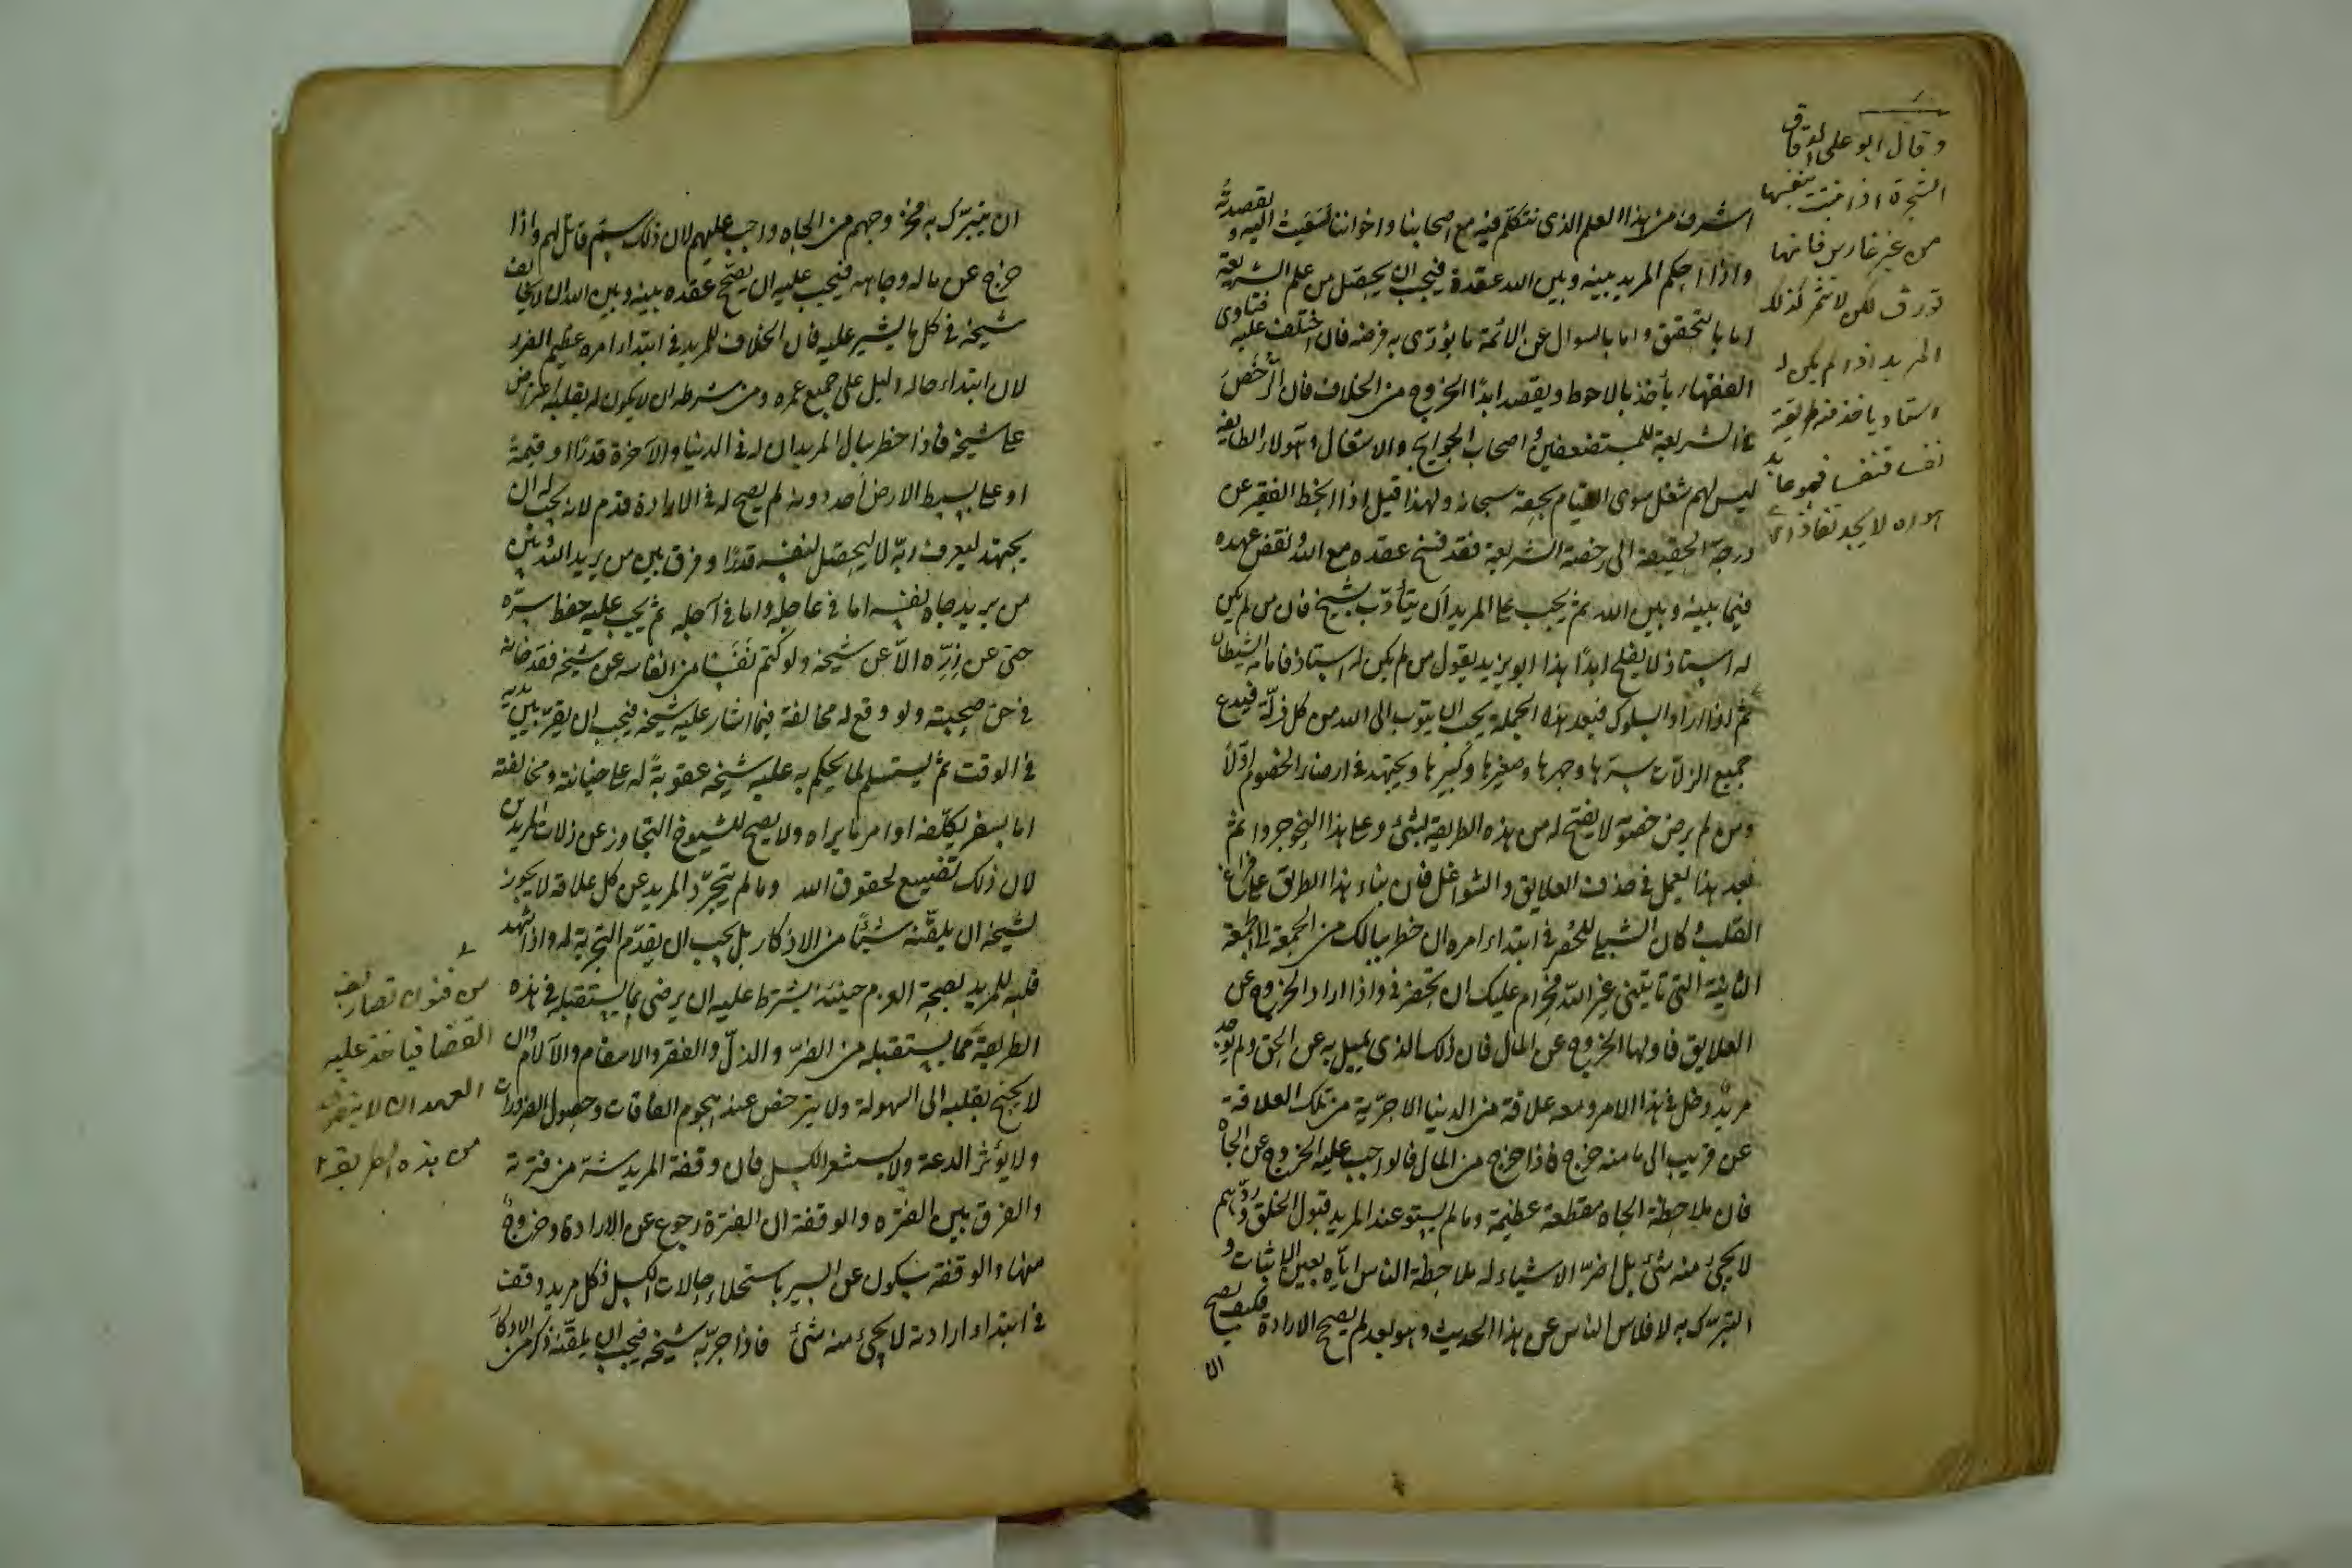 وقال ابو على الدقاق
الشجرة اذا نبتت بنفسها
من غير غارس فانها
تورق لكن لا تثمر كذلك
المريد اذا لم يكن له
استاد ياخذ منه طريقته
نفسا فنفسا فهو عابد
هواه لا يجد نفاذا
اشرف من هذا العلم الذى نتكلم فيه مع اصحابنا واخواننا لسعيت اليه ولقصدته
واذا احكم المريد بينه وبين الله عقدة فيجب ان يحصّل من علم الشريعة
اما بالتحقق واما بالسوال عن الائمة ما يؤدّى به فرضه فان اختلف عليه فتاوى
الفقهاء يأخذ بالاحوط ويقصد ابدًا الخروج من الخلاف فان الرُّخَصَ
فى الشريعة للمستضعفين واصحاب الحوايج والاشغال وهٓولاء الطايفة
ليس لهم شغل سوى القيام بحقه سبحانه ولهذا قيل اذا انحط الفقير عن
درجة الحقيقة الى رخصة الشريعة فقد فسخ عقده مع الله ونقض عهده
فيما بينه وبين الله ثم يجب على المريد ان يتأدّب بشيخ فان من لم يكن
له استاذ لا يفلح ابدًا هذا ابو يزيد يقول من لم يكن له استاذ فامامه الشيطان
ثم اذا اراد السلوك فبعد هذه الجملة يجب ان يتوب الى الله من كل زلّة فيدع
جميع الزلات سرّها وجهرها وصغيرها وكبيرها ويجتهد فى ارضاء الخصوم اوّلاً
ومن لم يرض خصومه لا يفتح له من هذه الطريقة بشئ وعلى هذا النحو جروا ثم
بعد هذا يعمل فى حذف العلايق والشواغل فان بناء هذا الطريق على فراغ
القلب وكان الشبلى للحُصرى فى ابتداء امره ان خطر ببالك من الجمعة الى الجمعة
الثانية التى تاتينى غير اللّه فحرام عليك ان تحضرنى واذا اراد الخروج عن
العلايق فاولها الخروج عن المال فان ذلك الذى يميل به عن الحق ولم يوجد
مريدٌ دخل فى هذا الامر ومعه علاقة من الدنيا الا جرّته من تلك العلاقة
عن قريب الى ما منه خرج فاذا خرج من المال فالواجب عليه الخروج عن الجاه
فان ملاحظة الجاه مقطعة عظيمة وما لم يستو عند المريد قبول الخلق وردّهم
لا يجئ منه شئ بل اضرّ الاشياء له ملاحظة الناس ايّاه بعين الاثبات و
التبرّك به لافلاس الناس عن هذا الحديث وهو بعد لم يصح الارادة فكيف يصح
ان
ان يتبرّك به فخروجهم من الجاه واجب عليهم لان ذلك سمّ قاتل لهم واذا
خرج عن ماله وجاهه فيجب عليه ان يصحّح عقده بينه وبين الله ان لا يخالف
شيخه فى كل ما يشير عليه فان الخلاف للمريد فى ابتداء امره عظيم الضرر
لان ابتداء حاله دليل على جميع عمره ومن شرطه ان لا يكون له بقلبه اعتراض
على شيخه فاذا خطر ببال المريد ان له فى الدنيا والآخرة قدرًا او قيمةً
او على بسيط الارض أحد دونه لم يصح له فى الارادة قدم لانه يجب له ان
يجتهد ليعرف ربّه لا ليحصّل لنفسه قدرًا وفرق بين من يريد الله وبين
من يريد جاه نفسه اما فى عاجله واما فى آجله ثم يجب عليه حفظ سرّه
حتى عن زِرّه الاّ عن شيخه ولو كتم نَفَسًا من انفاسه عن شيخه فقد خانه
فى حق صحبته ولو وقع له مخالفة فيما اشار عليه شيخه فيجب ان يقرّ بين يديه
فى الوقت ثم يستسلم لما يحكم به عليه شيخه عقوبةً له على خيانته ومخالفته
اما بسفر يكلّفه او امر ما يراه ولا يصح للشيوخ التجاوز عن زلات المريدين
لان ذلك تضييع لحقوق الله وما لم يتجرّد المريد عن كل علاقة لا يجوز
لشيخه ان يلقّنه شيئًا من الاذكار بل يجب ان يقدّم التجربة له واذا شهد
قلبه للمريد بصحة العزم حينئذ يشترط عليه ان يرضى بما يستقبله فى هذه
الطريقة ممّا يستقبله من الضرّ والذلّ والفقر والاسقام والآلام وان
لا يجنح بقلبه الى السهولة ولا يترخص عند هجوم الفاقات وحصول الضرورات
ولا يؤثر الدعة ولا يستشعر الكسل فان وقفة المريد شرّ من فترته
والفرق بين الفتره والوقفة ان الفترة رجوع عن الارادة وخروج
منها والوقفة سكون عن السير باستحلاء حالات الكسل فكل مريد وقف
فى ابتداء ارادته لا يجئ منه شئ فاذا جرّبه شيخه فيجب ان يلقّنه ذكر من الاذكار
من فنون تصاريف
القضا فياخذ عليه
العهد ان لا ينصرف
من هذه الطريقة